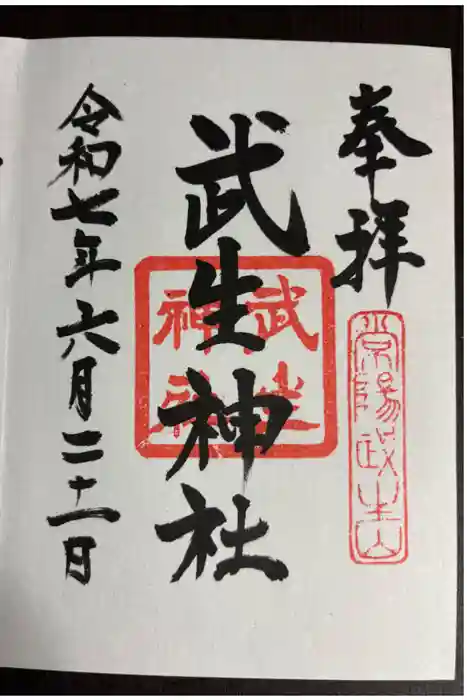 奉拝
常陽武生山
武生神社
武生
神社
令和七年六月二十一日